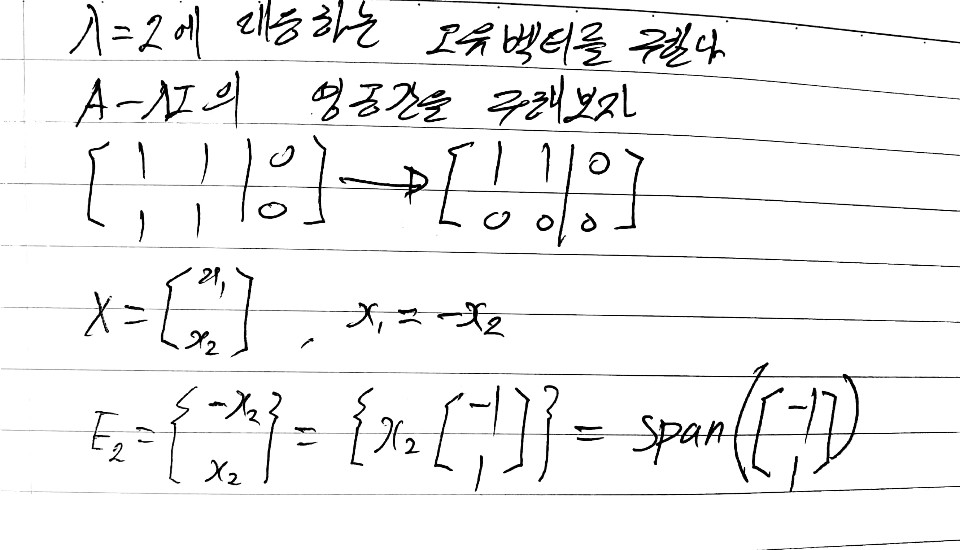 λ=2에 대응하는 고유벡터를 구한다
A-λI의 영공간을 구해보자
[1 1 | 0; 1 1 | 0] → [1 1 | 0; 0 0 | 0]
X = [x₁; x₂], x₁ = -x₂
E₂ = {-x₂; x₂} = {x₂ [-1; 1]} = span([-1; 1])